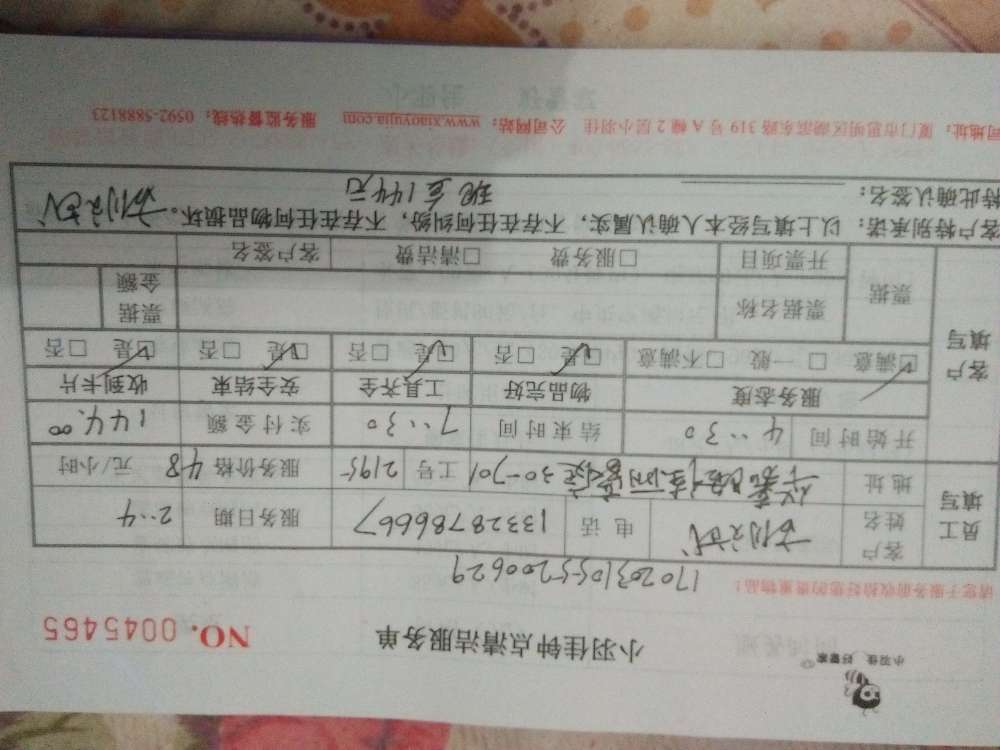 小羽佳 好管家
小羽佳钟点清洁服务单
NO. 0045465
请您于服务前收拾好您的贵重物品!
17020310555200629
员工填写
客户姓名
电话 13328786667
服务日期 2.4
地址 30-701
工号 2195
服务价格 48 元/小时
客户填写
开始时间 4:30
结束时间 7:30
实付金额 144.00
服务态度 物品完好 工具齐全 安全结束 收到卡片
☑满意 □一般 □不满意 ☑是 □否 ☑是 □否 ☑是 □否 ☑是 □否
票据 票据名称 票据金额
开票项目 □服务费 □清洁费 客户签名
客户特别承诺:以上填写经本人确认属实,不存在任何纠纷,不存在任何物品损坏。
特此确认签名: 现金144元
司地址:厦门市思明区湖滨东路319号A幢2层小羽佳 公司网站:www.xiaoyujia.com 服务监督热线:0592-5888123